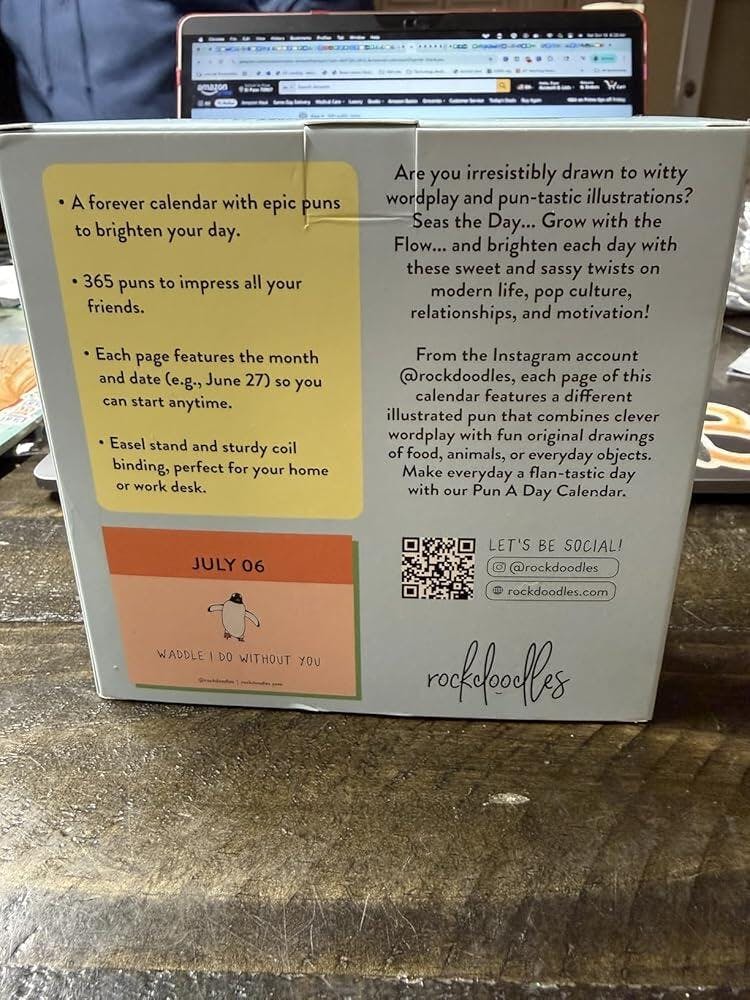 amazon
• A forever calendar with epic puns
to brighten your day.
• 365 puns to impress all your
friends.
• Each page features the month
and date (e.g., June 27) so you
can start anytime.
• Easel stand and sturdy coil
binding, perfect for your home
or work desk.
JULY 06
WADDLE I DO WITHOUT YOU
@rockdoodles | rockdoodles.com
Are you irresistibly drawn to witty
wordplay and pun-tastic illustrations?
Seas the Day... Grow with the
Flow... and brighten each day with
these sweet and sassy twists on
modern life, pop culture,
relationships, and motivation!
From the Instagram account
@rockdoodles, each page of this
calendar features a different
illustrated pun that combines clever
wordplay with fun original drawings
of food, animals, or everyday objects.
Make everyday a flan-tastic day
with our Pun A Day Calendar.
LET'S BE SOCIAL!
@rockdoodles
rockdoodles.com
rockdoodles